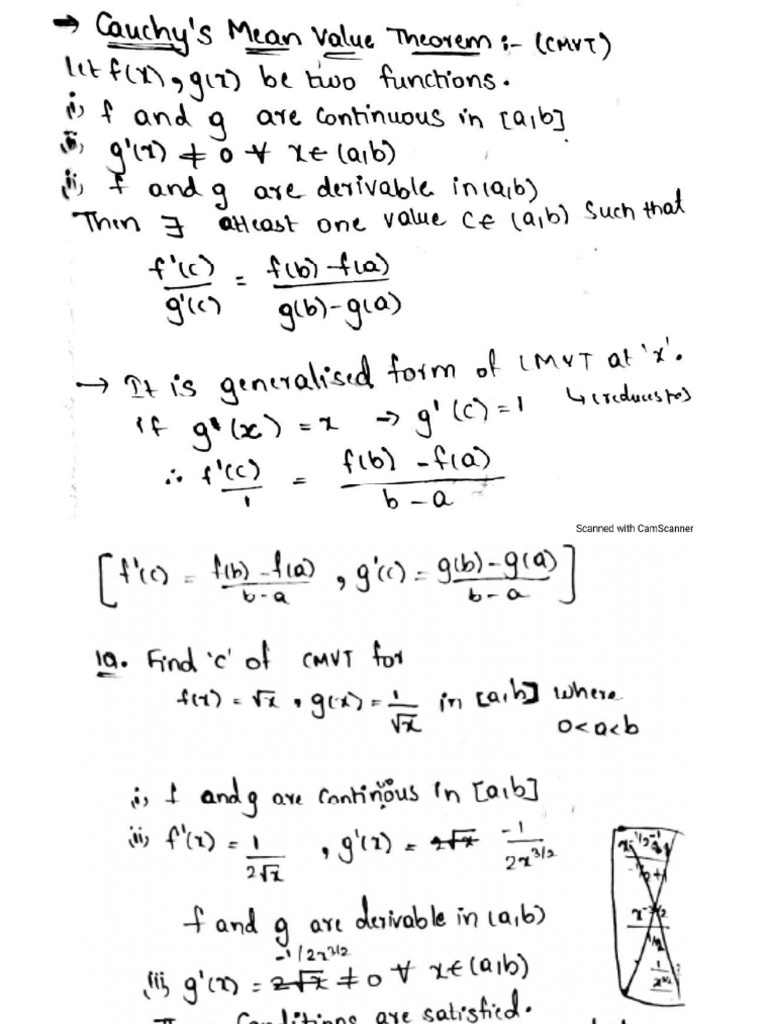 → Cauchy's Mean Value Theorem :- (CMVT)
let f(x), g(x) be two functions.
i) f and g are continuous in [a,b]
ii) g'(x) ≠ 0 ∀ x∈(a,b)
iii) f and g are derivable in (a,b)
Then ∃ atleast one value c∈ (a,b) such that
f'(c)/g'(c) = f(b)-f(a)/g(b)-g(a)
→ It is generalised form of LMVT at 'x'.
↳(reduces to)
if g'(x) = x → g'(c) = 1
∴ f'(c)/1 = f(b)-f(a)/b-a
Scanned with CamScanner
[f'(c) = f(b)-f(a)/b-a , g'(c) = g(b)-g(a)/b-a]
1Q. Find 'c' of CMVT for
f(x) = √x , g(x) = 1/√x in [a,b] where
0<a<b
i) f and g are continuous in [a,b]
ii) f'(x) = 1/2√x , g'(x) = 2√x -1/2x^3/2
f and g are derivable in (a,b)
-1/2x^3/2
iii) g'(x) = 2√x ≠ 0 ∀ x∈(a,b)
conditions are satisfied.